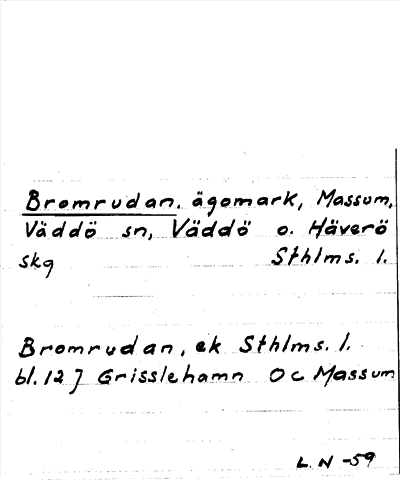 Bromrudan, ägomark, Massum,
Väddö sn, Väddö o. Häverö
skg Sthlms. l.
Bromrudan, ek Sthlms. l.
bl. 127 Grisslehamn Oc Massum
L. N -59